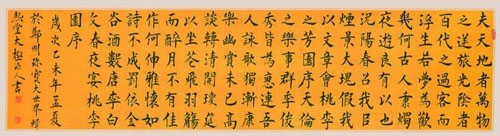 夫天地者萬物
之逆旅光陰者
百代之過客而
浮生若夢為歡
幾何古人秉燭
夜遊良有以也
況陽春召我以
煙景大塊假我
以文章會桃李
之芳園序天倫
之樂事群季俊
秀皆為惠連吾
人詠歌獨慚康
樂幽賞未已高
談轉清開瓊筵
以坐花飛羽觴
而醉月不有佳
作何伸雅懷如
詩不成罰依金
谷酒數 李
春夜宴桃李
園序
歲次己未年孟夏
於鄭州 寶大世界
堂大 人書